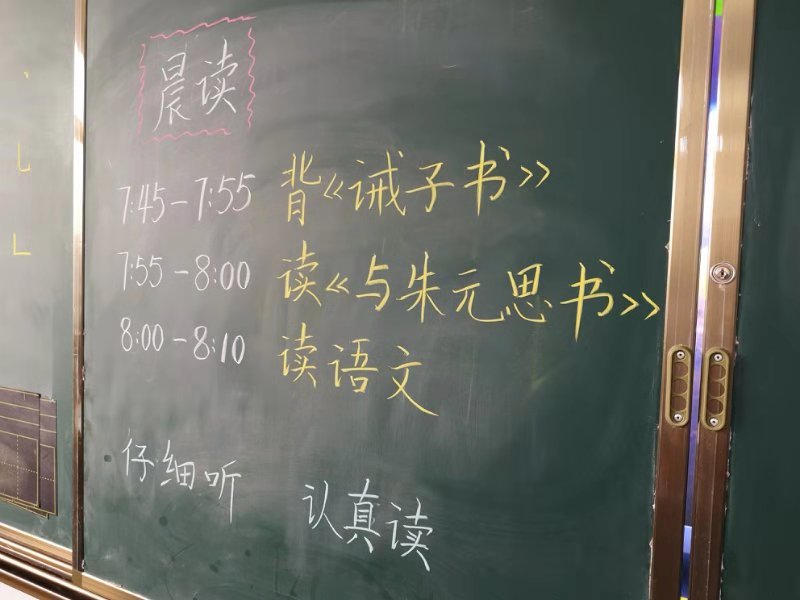 晨读
7:45-7:55 背《诫子书》
7:55-8:00 读《与朱元思书》
8:00-8:10 读语文
仔细听 认真读